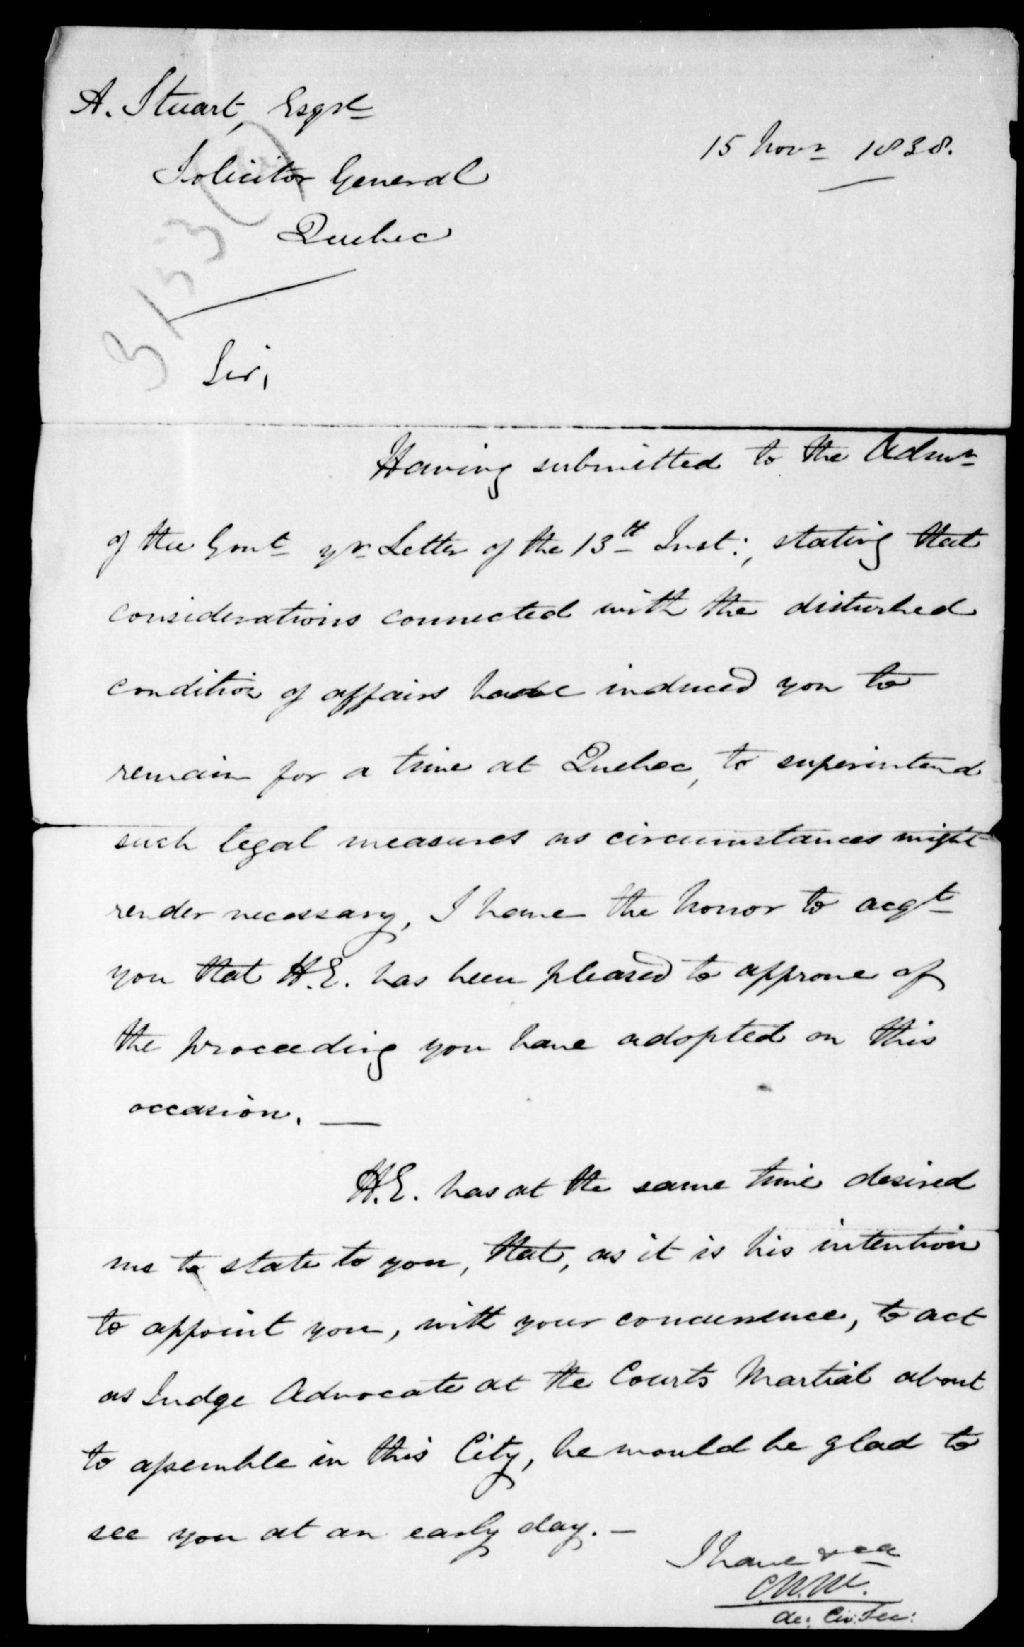 A. Stuart, Esqre
15 Novr 1838.
Solicitor General
Quebec
Sir,
Having submitted to the Admn
of the Govt yr Letter of the 13th Inst:, stating that
considerations connected with the disturbed
condition of affairs have induced you to
remain for a time at Quebec, to superintend
such legal measures as circumstances might
render necessary, I have the honor to acqt
you that H.E. has been pleased to approve of
the proceeding you have adopted on this
occasion. —
H.E. has at the same time desired
me to state to you, that, as it is his intention
to appoint you, with your concurrence, to act
as Judge Advocate at the Courts Martial about
to assemble in this City, he would be glad to
see you at an early day. —
I have &ca
Civ: Sec: